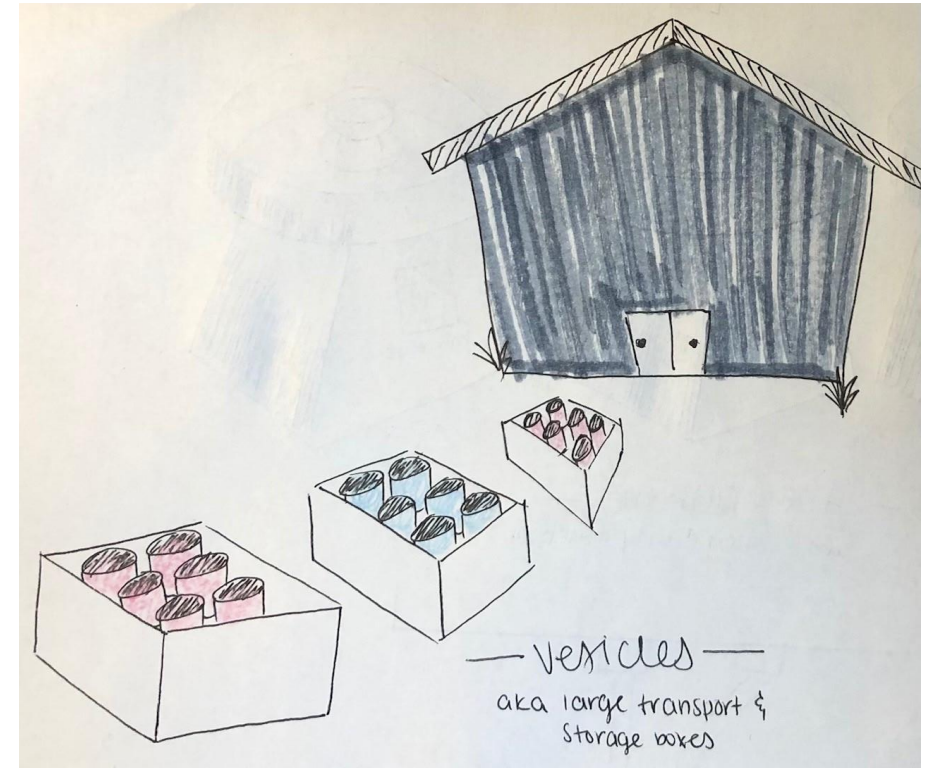 — vesicles —
aka large transport &
storage boxes